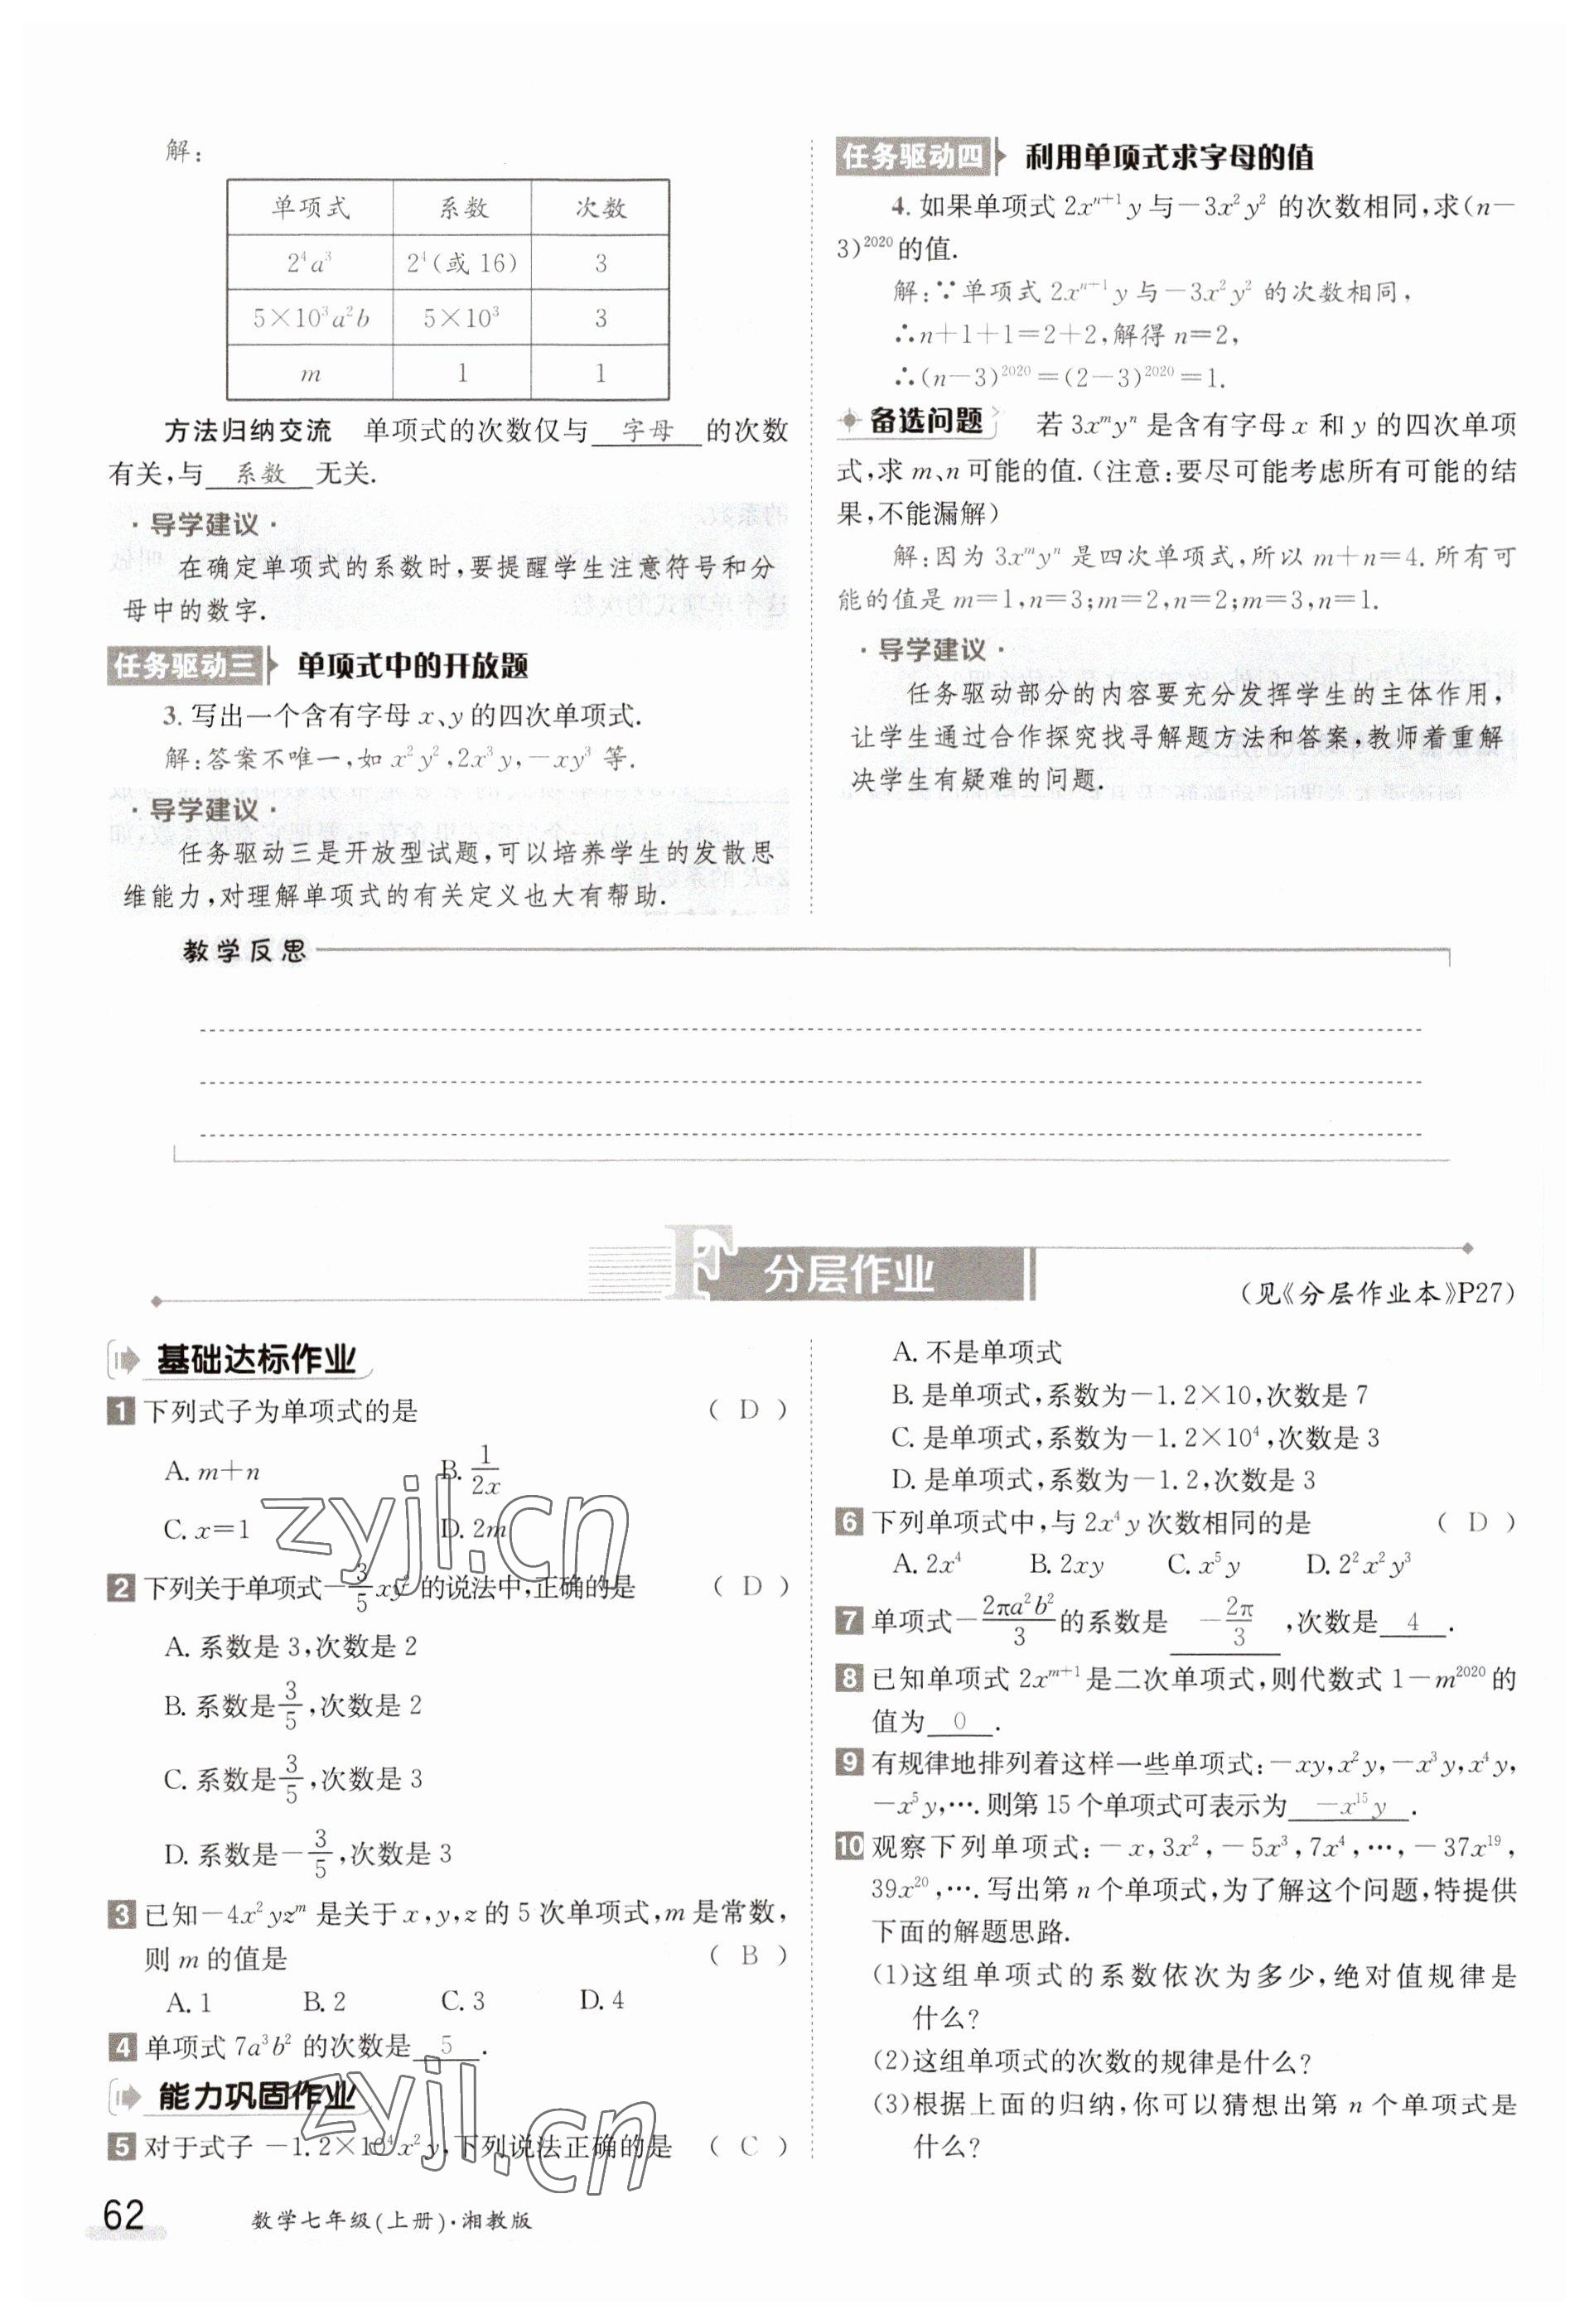 解：
单项式 系数 次数
2⁴a³ 2⁴(或 16) 3
5×10³a²b 5×10³ 3
m 1 1
方法归纳交流 单项式的次数仅与 字母 的次数
有关,与 系数 无关.
·导学建议·
在确定单项式的系数时,要提醒学生注意符号和分
母中的数字.
任务驱动三 单项式中的开放题
3. 写出一个含有字母 x、y 的四次单项式.
解:答案不唯一,如 x²y²,2x³y,－xy³ 等.
·导学建议·
任务驱动三是开放型试题,可以培养学生的发散思
维能力,对理解单项式的有关定义也大有帮助.
任务驱动四 利用单项式求字母的值
4. 如果单项式 2xⁿ⁺¹y 与－3x²y² 的次数相同,求(n－
3)²⁰²⁰ 的值.
解:∵单项式 2xⁿ⁺¹y 与－3x²y² 的次数相同,
∴n＋1＋1＝2＋2,解得 n＝2,
∴(n－3)²⁰²⁰＝(2－3)²⁰²⁰＝1.
备选问题 若 3xᵐyⁿ 是含有字母 x 和 y 的四次单项
式,求 m、n 可能的值.(注意:要尽可能考虑所有可能的结
果,不能漏解)
解:因为 3xᵐyⁿ 是四次单项式,所以 m＋n＝4. 所有可
能的值是 m＝1,n＝3;m＝2,n＝2;m＝3,n＝1.
·导学建议·
任务驱动部分的内容要充分发挥学生的主体作用,
让学生通过合作探究找寻解题方法和答案,教师着重解
决学生有疑难的问题.
教学反思
F 分层作业
(见《分层作业本》P27)
基础达标作业
1 下列式子为单项式的是 ( D )
A. m＋n B. 1/2x
C. x＝1 D. 2m
2 下列关于单项式－3/5 xy² 的说法中,正确的是 ( D )
A. 系数是 3,次数是 2
B. 系数是 3/5,次数是 2
C. 系数是 3/5,次数是 3
D. 系数是－3/5,次数是 3
3 已知－4x²yzᵐ 是关于 x,y,z 的 5 次单项式,m 是常数,
则 m 的值是 ( B )
A. 1 B. 2 C. 3 D. 4
4 单项式 7a³b² 的次数是 5 .
能力巩固作业
5 对于式子－1. 2×10⁴x²y,下列说法正确的是 ( C )
A. 不是单项式
B. 是单项式,系数为－1. 2×10,次数是 7
C. 是单项式,系数为－1. 2×10⁴,次数是 3
D. 是单项式,系数为－1. 2,次数是 3
6 下列单项式中,与 2x⁴y 次数相同的是 ( D )
A. 2x⁴ B. 2xy C. x⁵y D. 2²x²y³
7 单项式－2πa²b²/3 的系数是 －2π/3 ,次数是 4 .
8 已知单项式 2xᵐ⁺¹ 是二次单项式,则代数式 1－m²⁰²⁰ 的
值为 0 .
9 有规律地排列着这样一些单项式:－xy,x²y,－x³y,x⁴y,
－x⁵y,…. 则第 15 个单项式可表示为 －x¹⁵y .
10 观察下列单项式:－x,3x²,－5x³,7x⁴,…,－37x¹⁹,
39x²⁰,…. 写出第 n 个单项式,为了解这个问题,特提供
下面的解题思路.
(1)这组单项式的系数依次为多少,绝对值规律是
什么?
(2)这组单项式的次数的规律是什么?
(3)根据上面的归纳,你可以猜想出第 n 个单项式是
什么?
zyjl.cn
zyjl.cn
62 数学七年级(上册)·湘教版